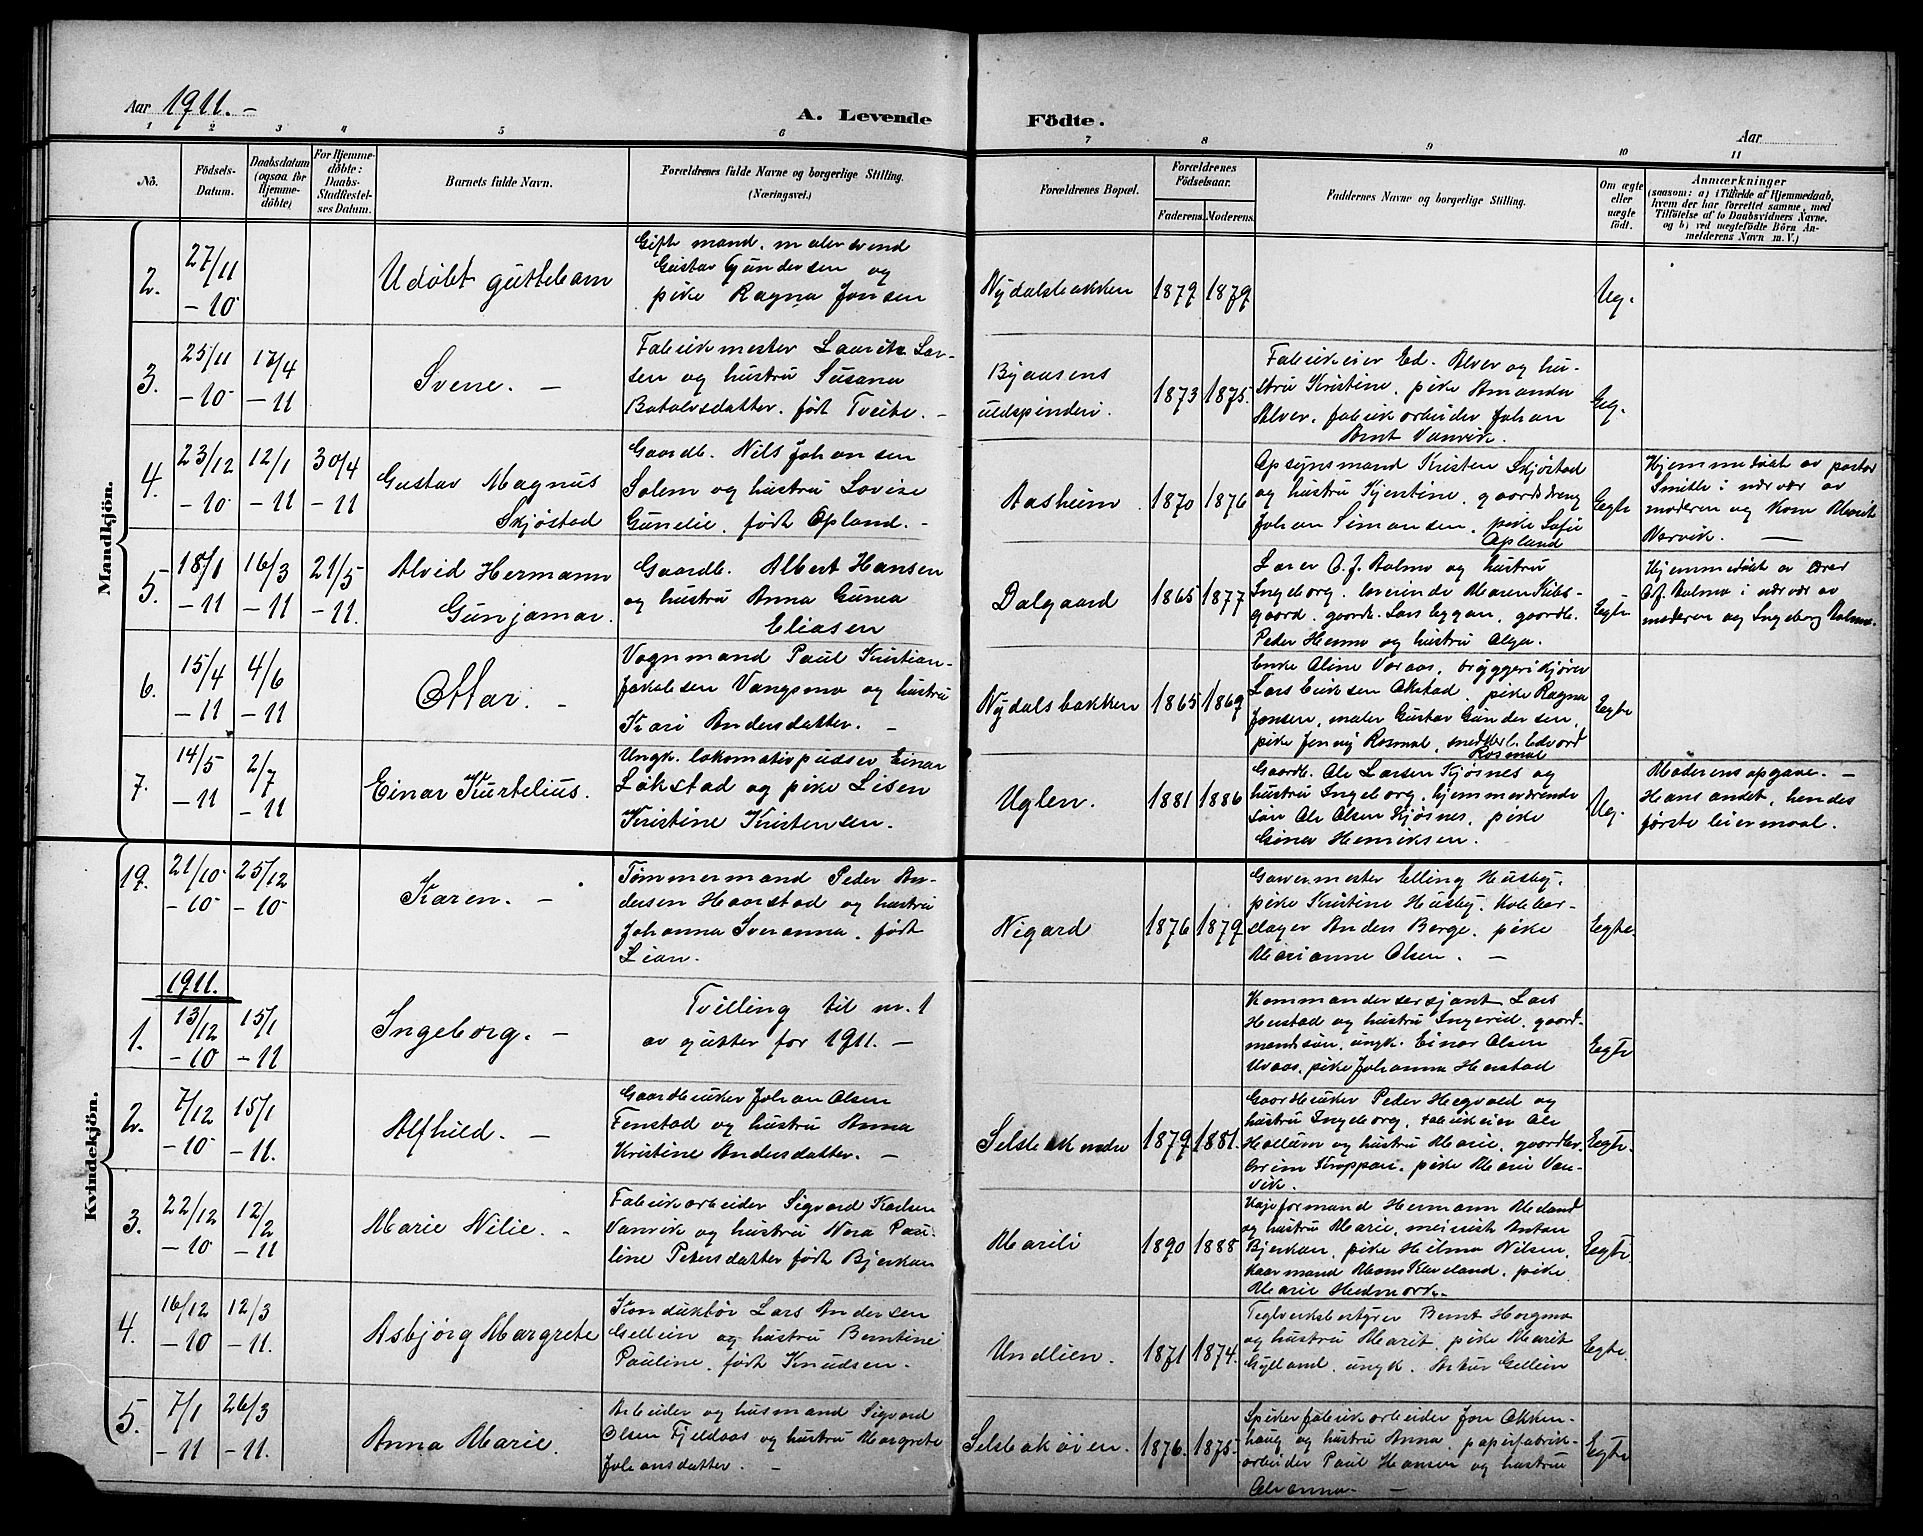 Aar 1911. –
A. Levende Födte.
Aar
1 2 3 4 5 6 7 8 9 10 11
No.
Födsels-Datum.
Daabsdatum (ogsaa for Hjemme-döbte)
For Hjemme-döbte: Daabs-Stadfæstel-ses Datum.
Barnets fulde Navn.
Forældrenes fulde Navne og borgerlige Stilling. (Næringsvei.)
Forældrenes Bopæl.
Forældrenes Födselsaar.
Faderens. Moderens.
Faddernes Navne og borgerlige Stilling.
Om ægte eller uægte født.
Anmærkninger
(saasom: a) i Tilfælde af Hjemmedaab, hvem der har forrettet samme, med Tilföielse af to Daabsvidners Navne. og b) ved uægtefødte Börn An-melderens Navn m. V.)
Mandkjön.
2. 27/11 – 10
Udøbt guttebarn
Gift mand, malersvend
Gustav Gundersen og
pike Ragna Jonsen
Nydalsbakken 1879 1879
Ug.
3. 25/11 – 10 17/4 – 11
Svene. –
Fabrikmester Laurits Lar-
sen og hustru Susana
Botolvsdatter, født Tveite. –
Byaasens
uldspinderi. 1873 1875.
Fabrikeier Ed. Alver og hu-
stru Kristine, pike Amanda
Alver, fabrikarbeider Johan
Bernt Vanvik.
Eg.
4. 23/12 – 10 12/1 – 11 30/4 – 11
Gustav Magnus
Skjøstad
Gaardb. Nils Johansen
Solem og hustru Lovise
Gunelie, født Opland. –
Aasheim. 1870 1876
Opsynsmand Kristen Skjøstad
og hustru Kjentine, gaardsdreng
Johan Simonsen, pike Sofie
Opland
Egte
Hjemmedøbt av pastor
Smith i nærvær av
moderen og Kom Marit
Narvik. –
5. 18/1 – 11 16/3 – 11 21/5 – 11
Alvid Hermann
Gunjamar.
Gaardb. Albert Hansen
og hustru Anna Gunea
Eliasen
Dalgaard 1865 1877
Lærer O. J. Aalmo og hustru
Ingeborg, Maren Kibs-
gaard, gaardb. Lars Eggan, gaardb.
Peder Hermo og hustru Olga.
Egte
Hjemmedøbt av lærer
O. J. Aalmo i nærvær av
moderen og Ingeborg Aalmo.
6. 15/4 – 11 4/6 – 11
Ottar. –
Vognmand Paul Kristian
Jakobsen Vangsmo og hustru
Kari Andersdatter. –
Nydalsbakken 1865 1869
Enke Oline Voraas, bryggerikjører
Lars Eriksen Okstad, pike Ragna
Jonsen, maler Gustav Gundersen,
pike Jenny Rosmal, Edvard
Rosmal
Egte
7. 14/5 – 11 2/7 – 11
Einar Kurtelius.
Ungk. lokomotivpudser Einar
Løkstad og pike Lisen
Kristine Kristensen.
Uglen. 1881 1886
Gaardb. Ole Larsen Kjøsnes og
hustru Ingeborg, hjemmeværende
søn Ole Olsen Kjøsnes, pike
Gina Henriksen.
Ug.
Moderens opgave. –
Hans andet, hendes
første leiermaal.
Kvindekjön.
19. 21/10 – 10 25/12 – 10
Karen. –
Tømmermand Peder An-
dersen Haarstad og hustru
Johanna Sveranna, født
Lian.
Nigard 1876 1879
Garvermester Elling Husby,
pike Kristine Husby,
Anders Berge, pike
Marianne Olsen. –
Egte.
1911.
1. 13/12 – 10 15/1 – 11
Ingeborg. –
Tvilling til nr. 1
av gutter for 1911. –
Kommandersersjant Lars
Herstad og hustru Ingerid, gaard-
mandssøn, ungk. Einar Olsen
Uvaas, pike Johanna Herstad
Egte
2. 7/12 – 10 15/1 – 11.
Alfhild. –
Gaardbruker Johan Olsen
Fenstad og hustru Anna
Kristine Andersdatter. –
Selsbak nedre 1879 1881.
Gaardbruker Peder Hegvold og
hustru Ingeborg, fabrikeier Ole
Hallum og hustru Marie, gaardbr.
Kroppan, pike Marie Van-
vik.
Egte.
3. 22/12 – 10 12/2 – 11
Marie Nilie. –
Fabrikarbeider Sigvard Karlsen
Vanvik og hustru Nora Pau-
line Petersdatter født Bjerkan
Marili 1890 1888
Hermann Meland
og hustru Marie, meierist Anton
Bjerkan, pike Helma Nilsen,
Kleveland, pike
Marie Hedmark.
Egte.
4. 16/12 – 10 12/3 – 11.
Asbjørg Margrete
Konduktør Lars Andersen
Gellein og hustru Berntine
Pauline, født Knudsen.
Undlien. 1871 1874.
Teglverksbestyrer Bernt Hergmo
og hustru Marit, pike Marit
Gylland, ungk. Artur Gellein
Egte.
5. 7/1 – 11 26/3 – 11.
Anna Marie.
Arbeider og husmand Sigvard
Olsen Fjeldaas og hustru Margrete
Johansdatter. –
Selsbakøien. 1876. 1875.
Spikerfabrikarbeider Jon Okken-
haug og hustru Anna, papirfabrik-
arbeider Paul Hansen og hustru
Oleanna. –
Egte